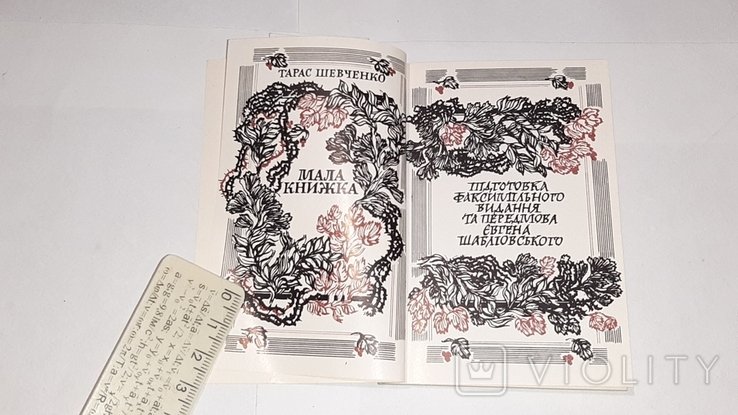 ТАРАС ШЕВЧЕНКО
МАЛА
КНИЖКА
ПІДГОТОВКА
ФАКСИМІЛЬНОГО
ВИДАННЯ
ТА ПЕРЕДМОВА
ЄВГЕНА
ШАБЛІОВСЬКОГО
0 1 2 3
VIOLITY